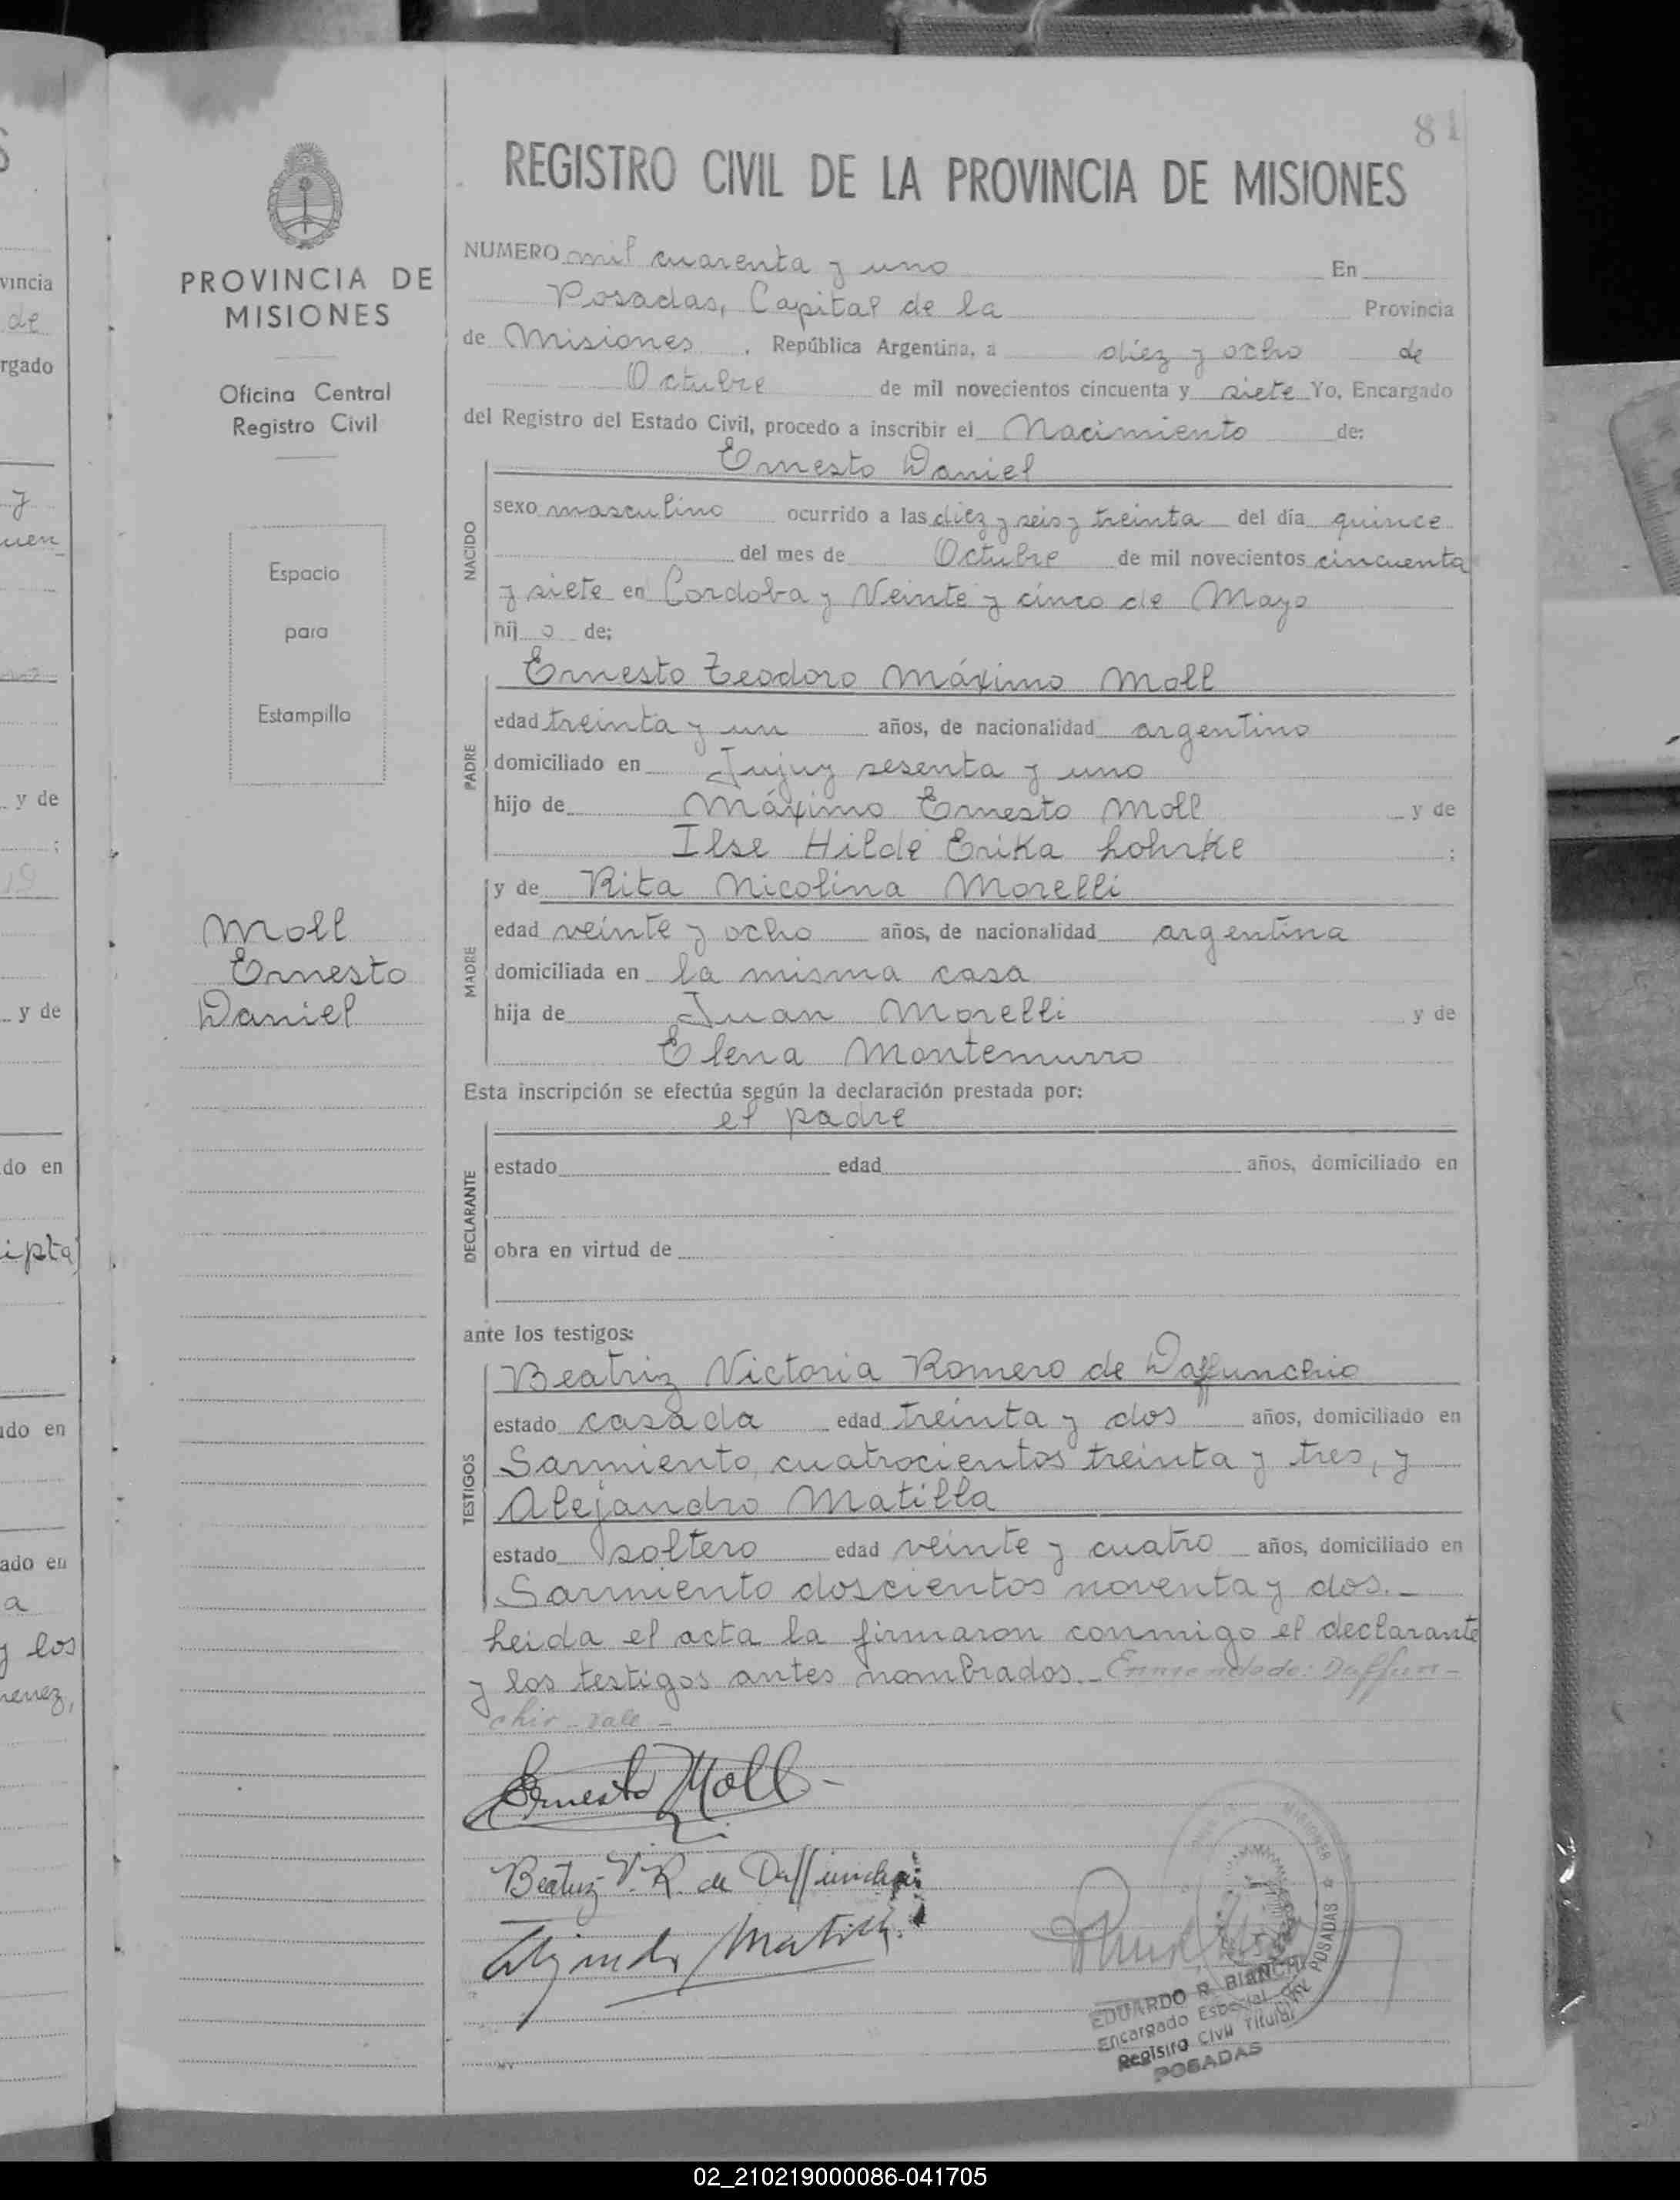 81
REGISTRO CIVIL DE LA PROVINCIA DE MISIONES
PROVINCIA DE
MISIONES
Oficina Central
Registro Civil
Espacio
para
Estampilla
Moll
Ernesto
Daniel
NUMERO mil cuarenta y uno En
Posadas, Capital de la Provincia
de Misiones, República Argentina, a diez y ocho de
Octubre de mil novecientos cincuenta y siete Yo, Encargado
del Registro del Estado Civil, procedo a inscribir el Nacimiento de:
Ernesto Daniel
NACIDO
sexo masculino ocurrido a las diez y seis y treinta del día quince
del mes de Octubre de mil novecientos cincuenta
y siete en Cordoba y Veinte y cinco de Mayo
hij o de;
Ernesto Teodoro Máximo Moll
PADRE
edad treinta y un años, de nacionalidad argentino
domiciliado en Jujuy sesenta y uno
hijo de Máximo Ernesto Moll y de
Ilse Hilde Erika Lohrke ;
MADRE
y de Rita Nicolina Morelli
edad veinte y ocho años, de nacionalidad argentina
domiciliada en la misma casa
hija de Juan Morelli y de
Elena Montemurro
Esta inscripción se efectúa según la declaración prestada por:
el padre
DECLARANTE
estado edad años, domiciliado en
obra en virtud de
ante los testigos:
TESTIGOS
Beatriz Victoria Romero de Daffunchio
estado casada edad treinta y dos años, domiciliado en
Sarmiento cuatrocientos treinta y tres, y
Alejandro Matilla
estado soltero edad veinte y cuatro años, domiciliado en
Sarmiento doscientos noventa y dos.-
Leida el acta la firmaron conmigo el declarante
y los testigos antes nombrados.- Enmendado: Daffun-
chio - vale -
Ernesto Moll
Beatriz V. R. de Daffunchio
Alejandro Matilla
MISIONES
POSADAS
EDUARDO R. BIANCHI
Encargado Especial
Registro Civil Titular
POSADAS
vincia
de
rgado
y
uen
y de
;
19
y de
do en
ipta
do en
ado en
a
y los
menez,
02_210219000086-041705